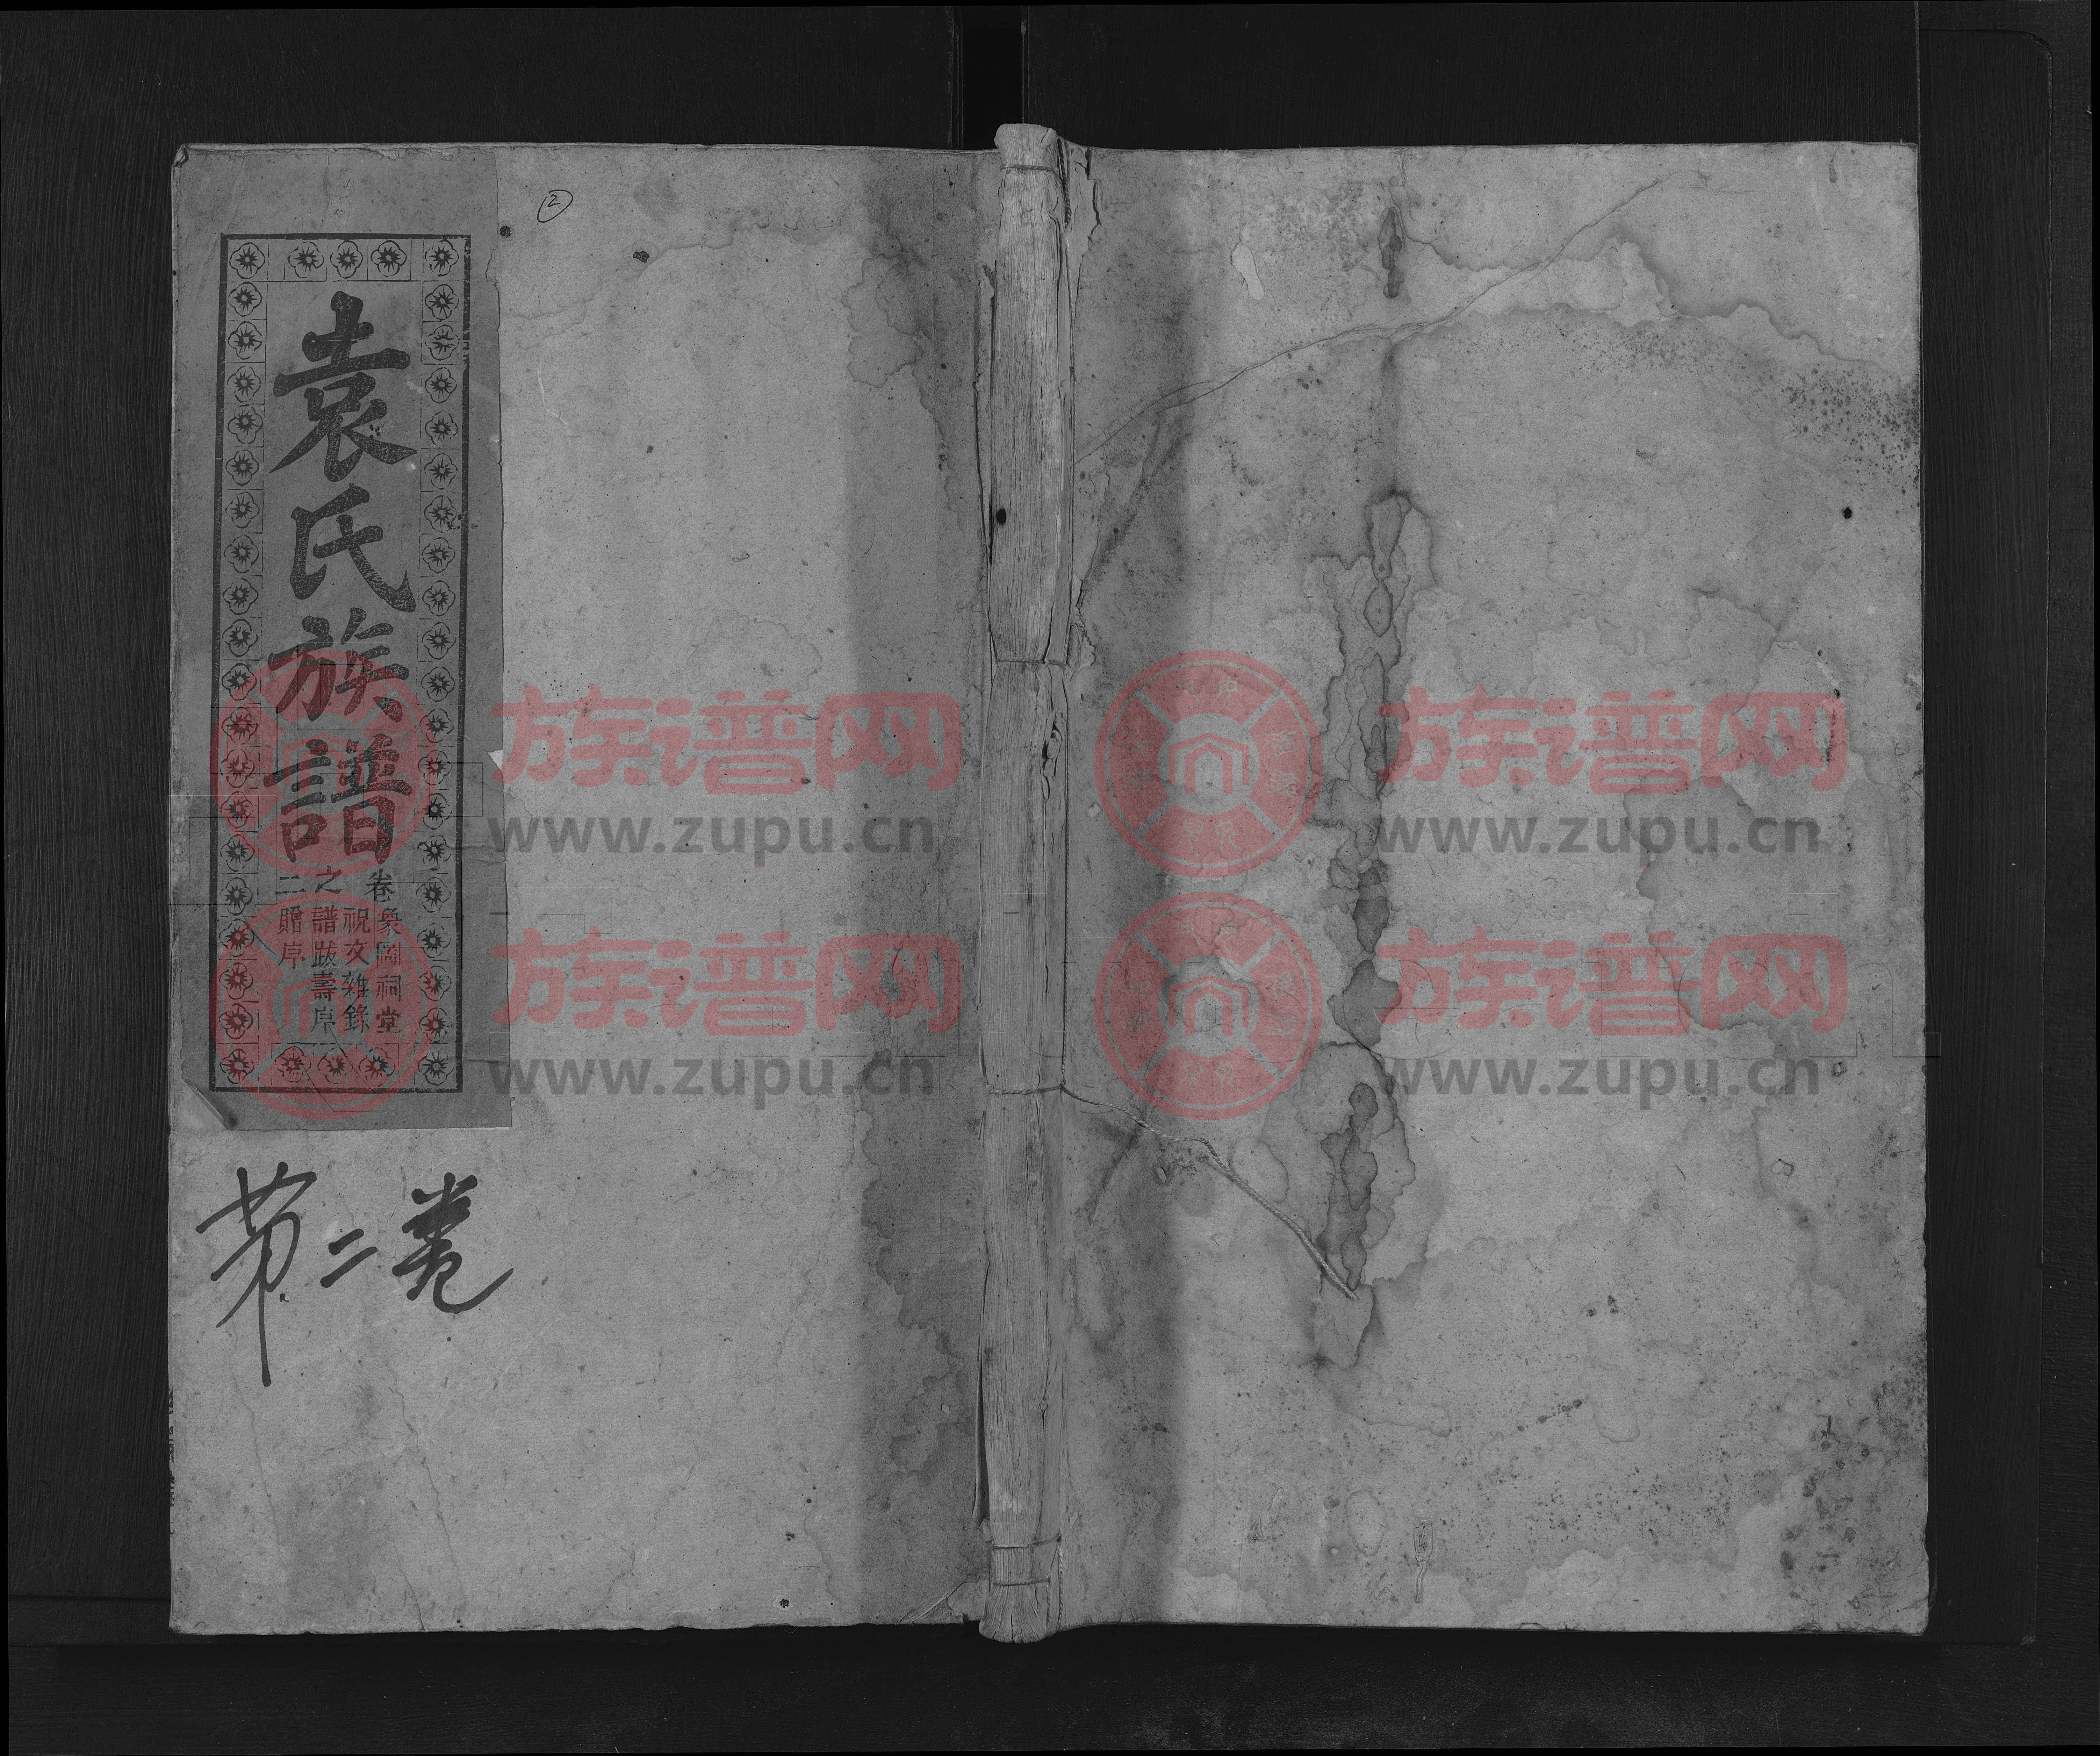 ②
袁氏族譜
卷之二
象圖祠堂
祝文雜錄
譜跋壽序
贈序
第二卷
族谱网
www.zupu.cn
族谱网
www.zupu.cn
族谱网
www.zupu.cn
族谱网
www.zupu.cn